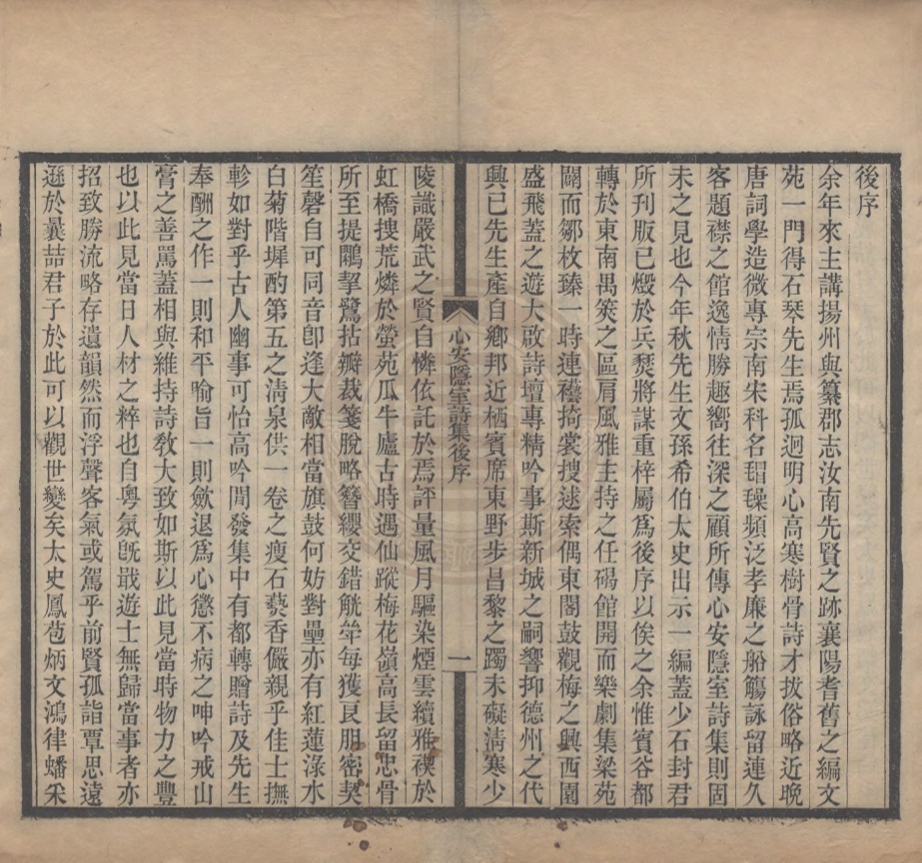 後序
余年來主講揚州與纂郡志汝南先賢之跡襄陽耆舊之編文
苑一門得石琴先生焉孤迥明心高寒樹骨詩才拔俗略近晚
唐詞學造微專宗南宋科名瑁璪頻泛孝廉之船觴詠留連久
客題襟之館逸情勝趣嚮往深之顧所傳心安隱室詩集則固
未之見也今年秋先生文孫希伯太史出示一編蓋少石封君
所刊版已燬於兵焚將謀重梓屬爲後序以俟之余惟賓谷都
轉於東南禺筴之區肩風雅主持之任碣館開而樂劇集梁苑
闢而鄒枚臻一時連襼掎裳搜逑索偶東閣鼓觀梅之興西園
盛飛蓋之遊大啟詩壇專精吟事斯新城之嗣響抑德州之代
興已先生產自鄉邦近栖賓席東野步昌黎之躅未礙淸寒少
心安隱室詩集後序
一
陵識嚴武之賢自憐依託於焉評量風月驅染煙雲續雅禊於
虹橋搜荒燐於螢苑瓜牛廬古時遇仙蹤梅花嶺高長留忠骨
所至提鷴挈鷺拈瓣裁箋脫略簪纓交錯觥斝每獲良朋密契
笙磬自可同音卽逢大敵相當旗鼓何妨對壘亦有紅蓮淥水
白菊階墀酌第五之淸泉供一卷之瘦石藝香儼親乎佳士撫
軫如對乎古人幽事可怡高吟閒發集中有都轉贈詩及先生
奉酬之作一則和平喻旨一則歛退爲心懲不病之呻吟戒山
膏之善駡蓋相與維持詩敎大致如斯以此見當時物力之豐
也以此見當日人材之粹也自粵氛旣戢遊士無歸當事者亦
招致勝流略存遺韻然而浮聲客氣或駕乎前賢孤詣覃思遠
遜於曩喆君子於此可以觀世變矣太史鳳苞炳文鴻律蟠采